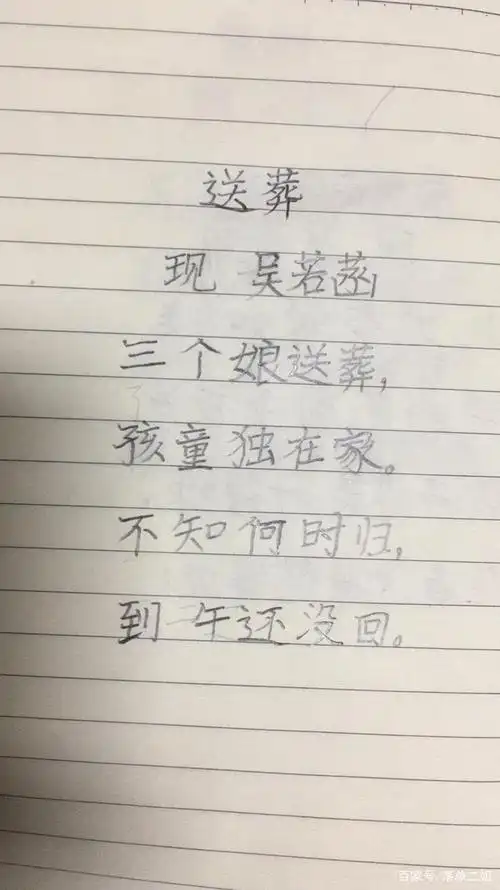 送葬
现 吴若菡
三个娘送葬,
孩童独在家。
不知何时归,
到午还没回。
百家号